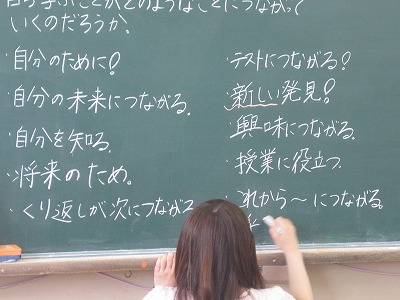 学ぶことがどのようなことにつながって
いくのだろうか。
・自分のために!
・自分の未来につながる。
・自分を知る。
・将来のため。
・くり返しが次につながる
・テストにつながる!
・新しい発見!
・興味につながる。
・授業に役立つ。
・これから～につながる。